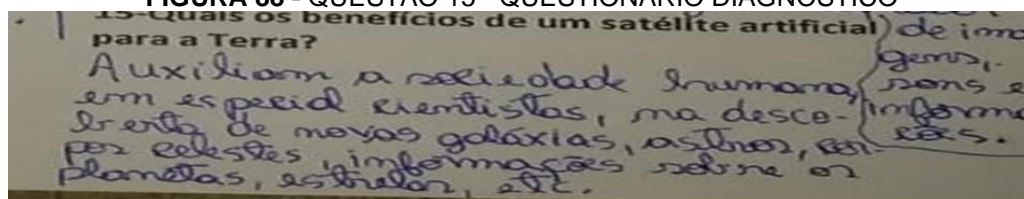 FIGURA 66 - QUESTÃO 15 - QUESTIONÁRIO DIAGNÓSTICO
15-Quais os benefícios de um satélite artificial
para a Terra?
Auxiliam a sociedade humana,
em especial cientistas, na desco-
berta de novas galáxias, astros, cor-
pos celestes, informações sobre os
planetas, estrelas, etc.
de ima
gens,
sons e
informa
ções.